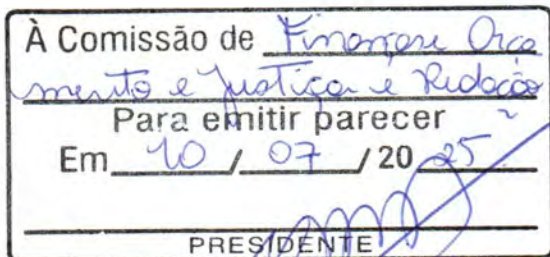 À Comissão de Finanças e Orça
mento e Justiça e Redação
Para emitir parecer
Em 10 / 07 / 20 25
PRESIDENTE